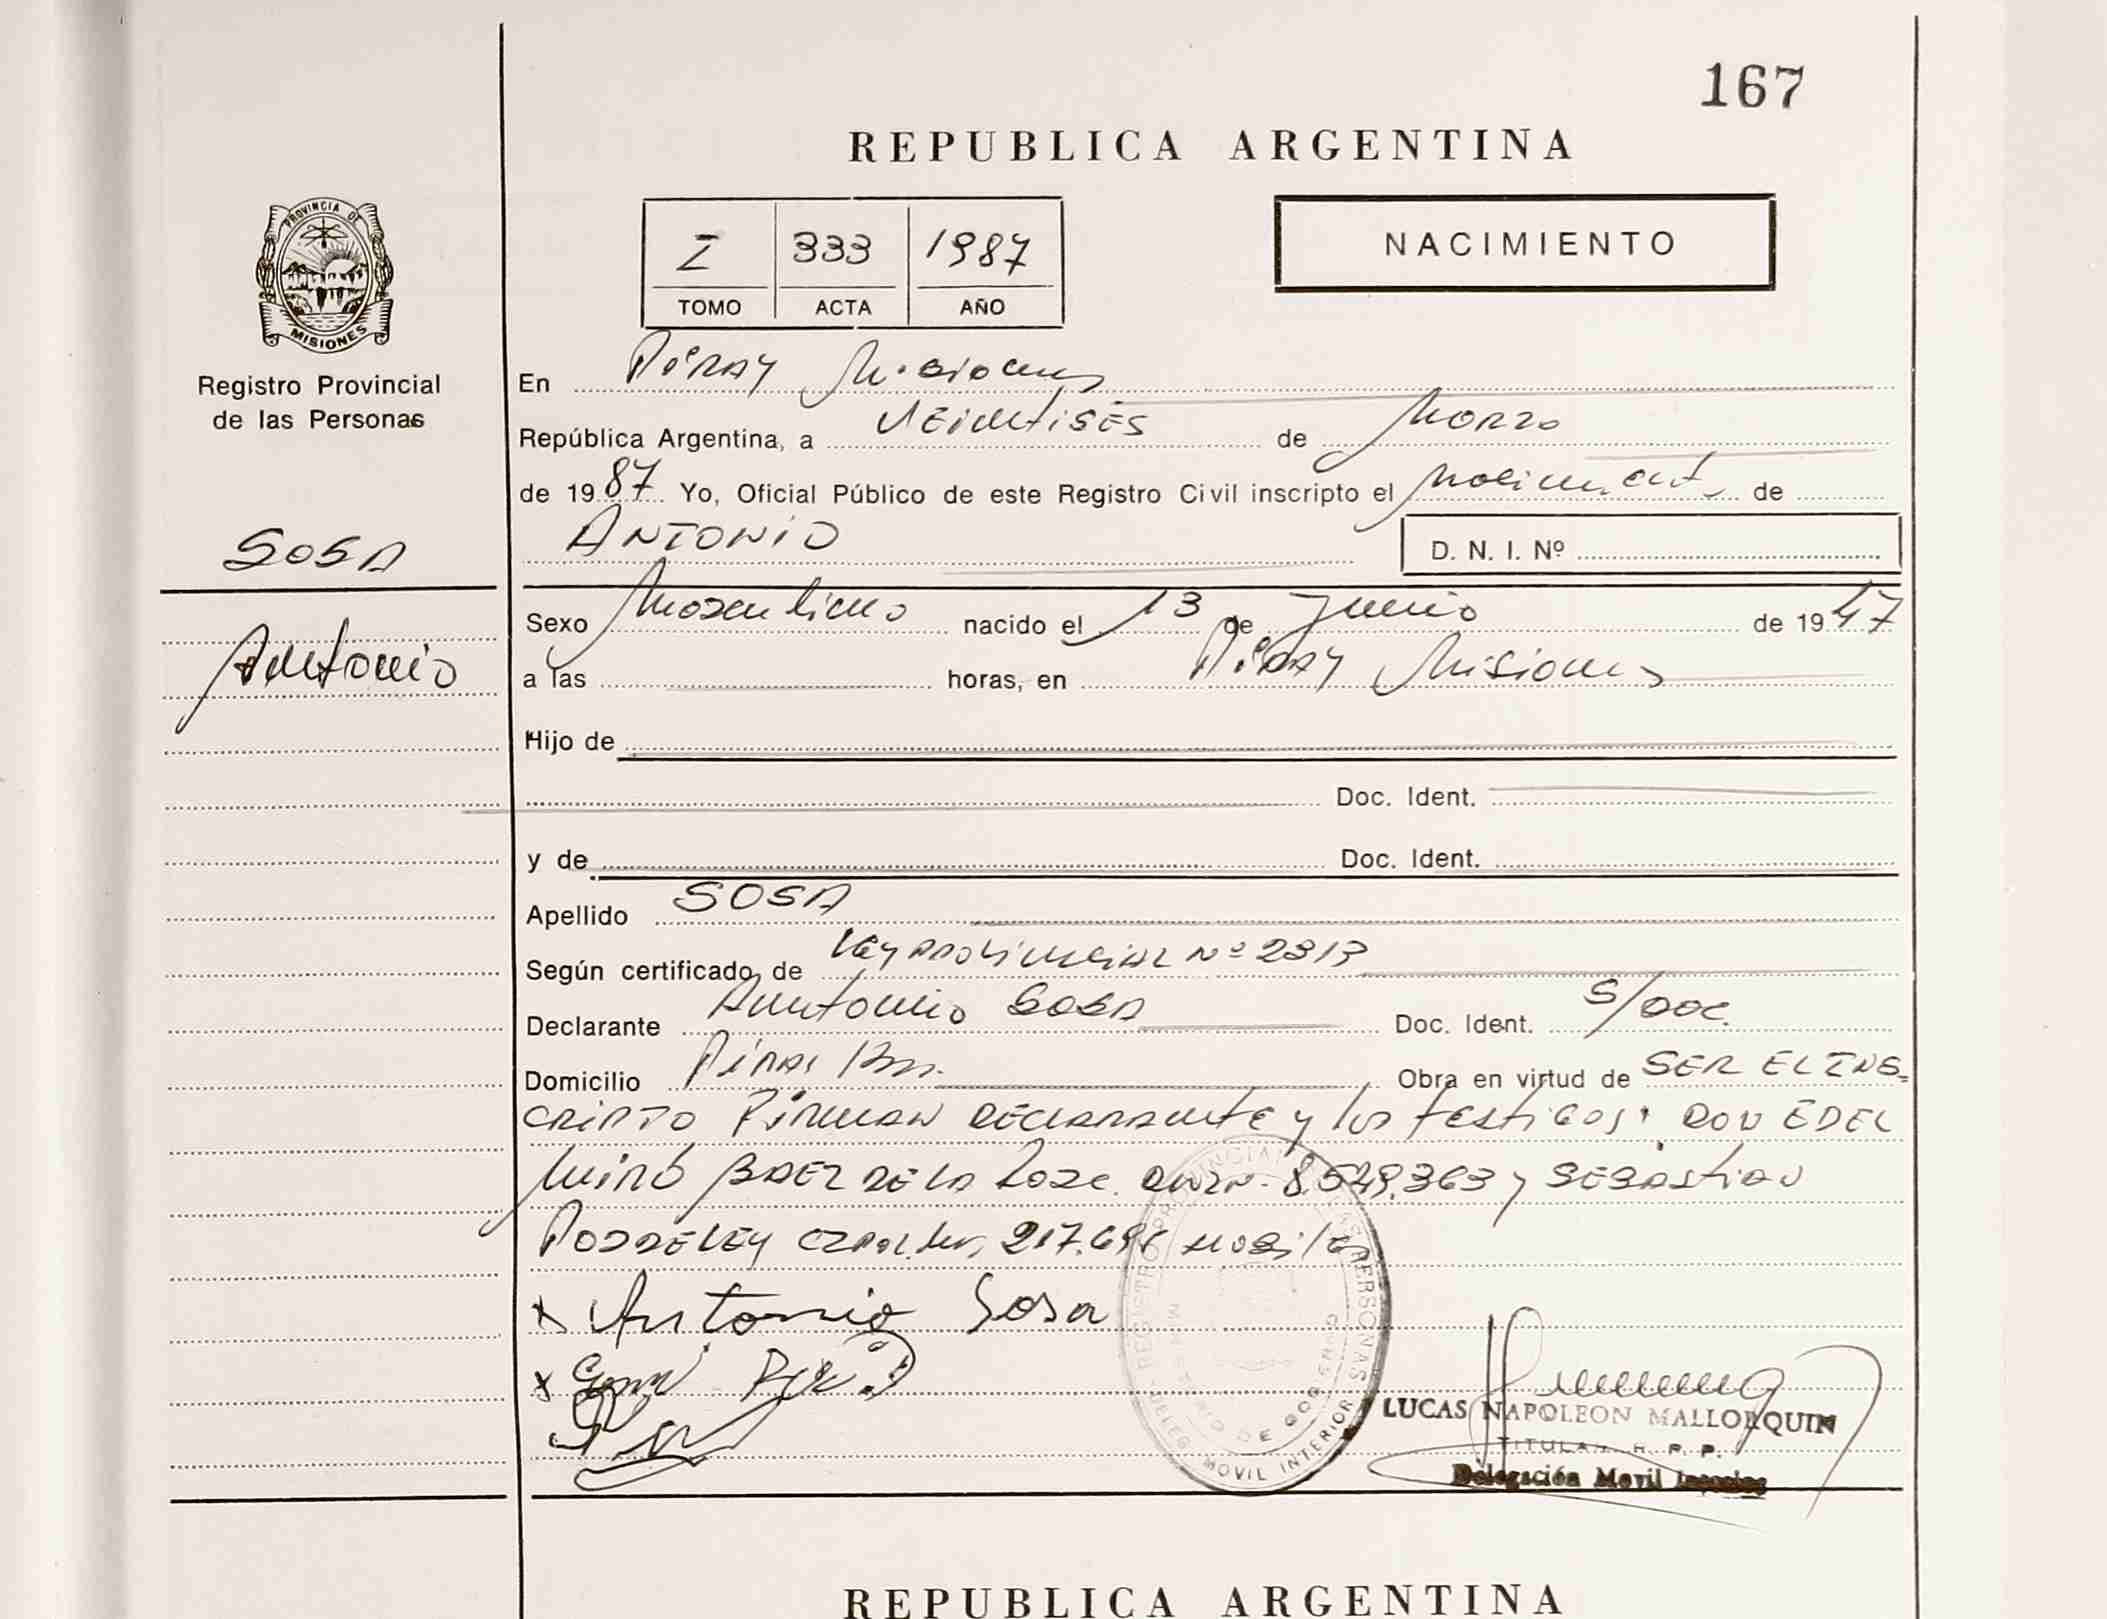 167
REPUBLICA ARGENTINA
PROVINCIA DE
MISIONES
Registro Provincial
de las Personas
I 333 1987
TOMO ACTA AÑO
NACIMIENTO
En Piray Misiones
República Argentina, a VEINTISES de Marzo
de 1987 Yo, Oficial Público de este Registro Civil inscripto el de
ANTONIO
D. N. I. Nº
SOSA
Antonio
Sexo Masculino nacido el 13 de Junio de 1947
a las horas, en PiRAY Misiones
Hijo de
Doc. Ident.
y de Doc. Ident.
Apellido SOSA
Según certificado de Ley PROVINCIAL Nº 2313
Declarante Antonio SOSA Doc. Ident. S/DOC.
Domicilio Obra en virtud de SER EL INS=
CRIPTO FIRMAN DECLARANTE y los testigos: DON EDEL
MIRO BAEZ DE LA 8.549.363 y SEBASTIAN
217.696
x Antonio Sosa
x
REGISTRO PROVINCIAL DE LAS PERSONAS
MINISTERIO DE GOBIERNO
DELEG. MOVIL INTERIOR
LUCAS NAPOLEON MALLORQUIN
TITULAR R. P. P.
Delegación Movil
REPUBLICA ARGENTINA